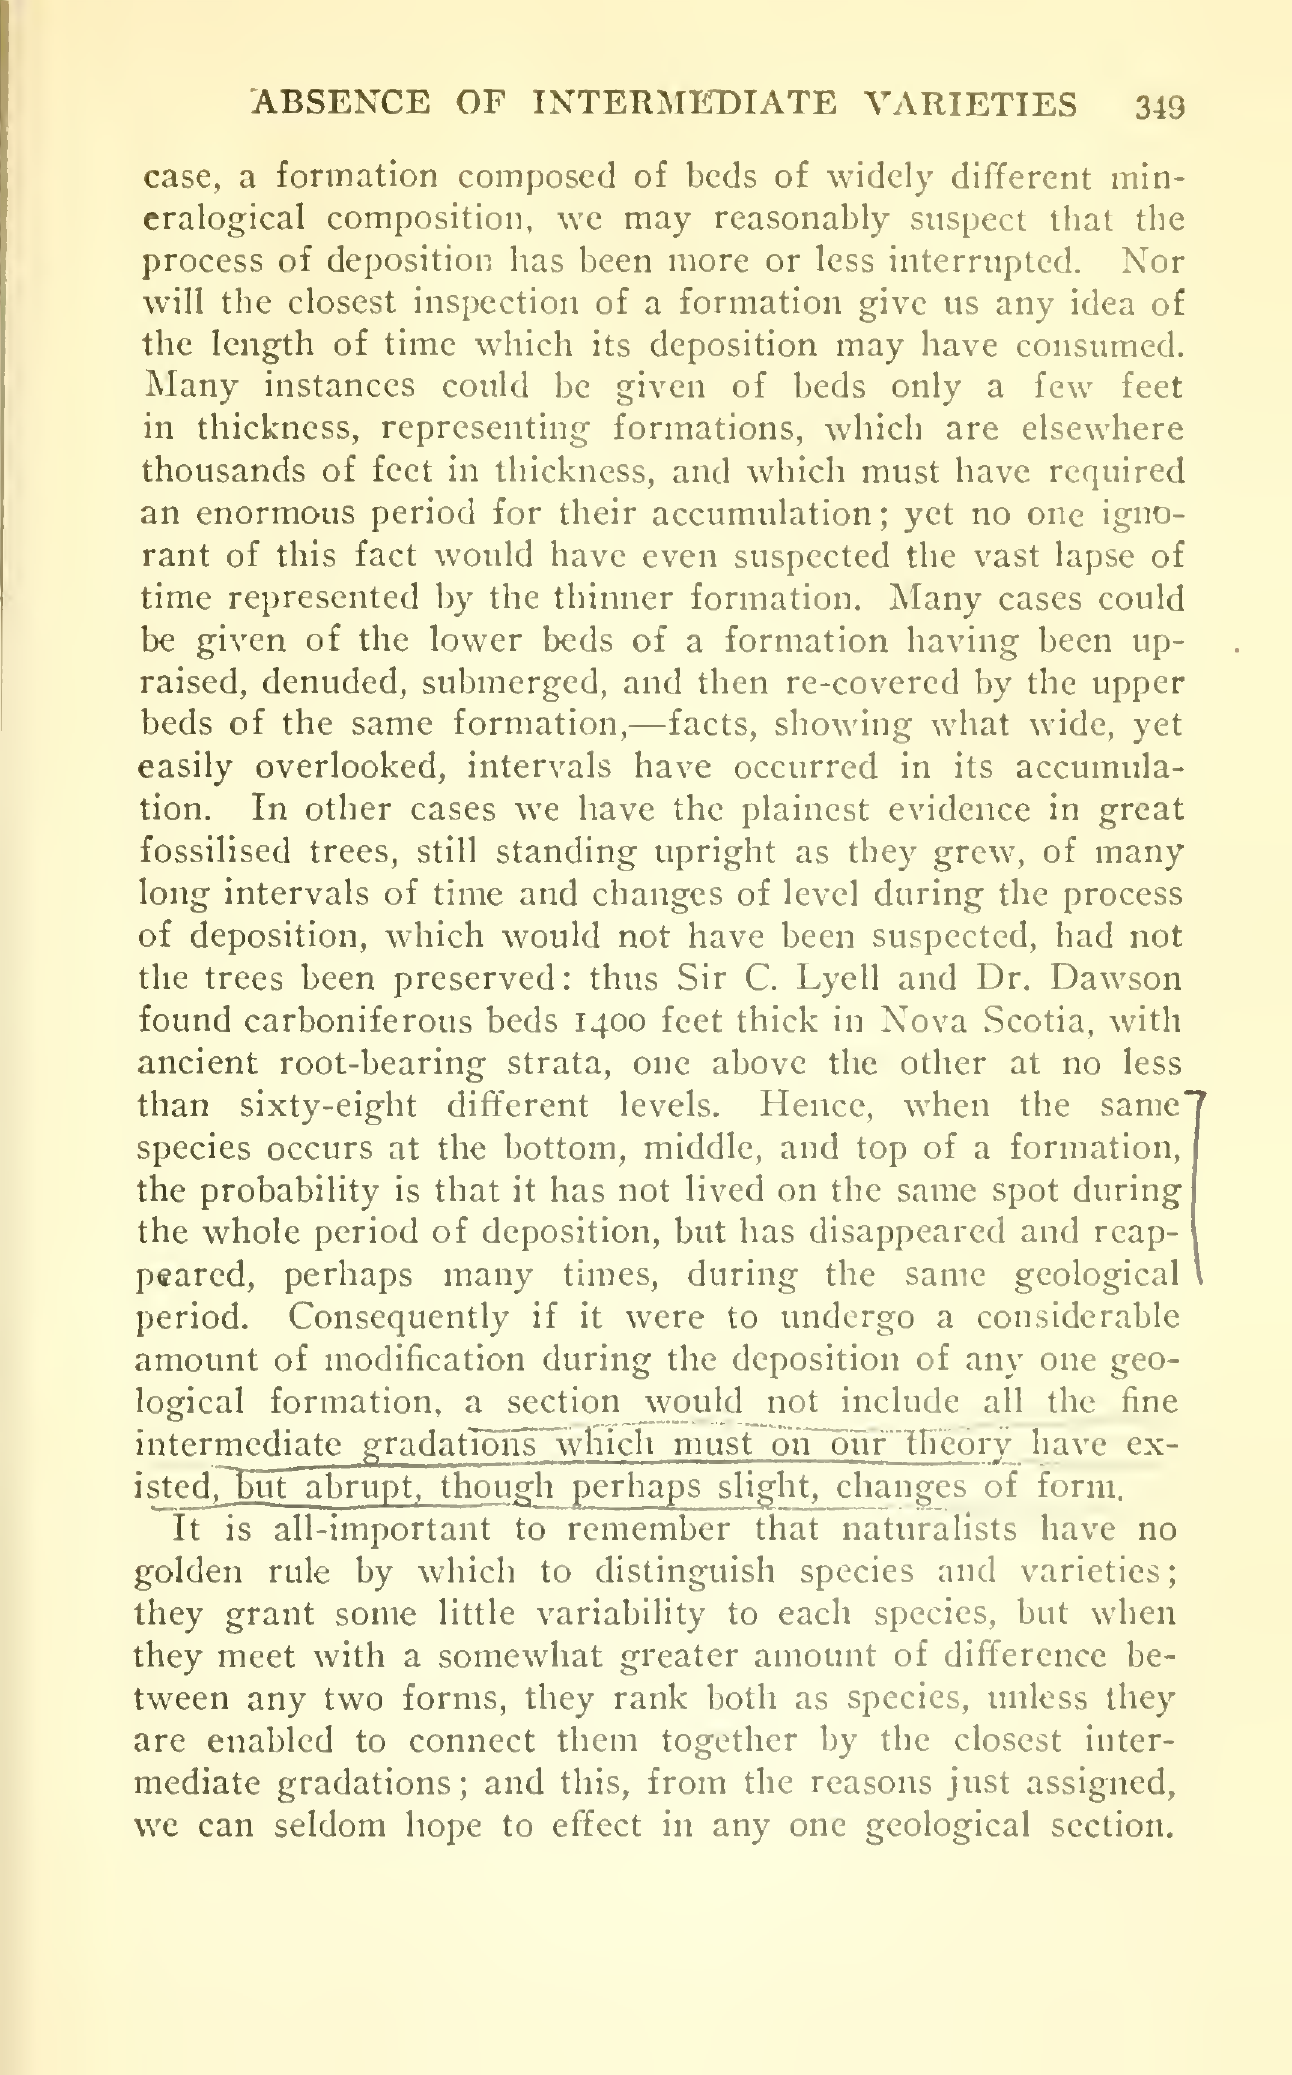 ABSENCE OF INTERMEDIATE VARIETIES 349
case, a formation composed of beds of widely different min-
eralogical composition, we may reasonably suspect that the
process of deposition has been more or less interrupted. Nor
will the closest inspection of a formation give us any idea of
the length of time which its deposition may have consumed.
Many instances could be given of beds only a few feet
in thickness, representing formations, which are elsewhere
thousands of feet in thickness, and which must have required
an enormous period for their accumulation; yet no one igno-
rant of this fact would have even suspected the vast lapse of
time represented by the thinner formation. Many cases could
be given of the lower beds of a formation having been up-
raised, denuded, submerged, and then re-covered by the upper
beds of the same formation,—facts, showing what wide, yet
easily overlooked, intervals have occurred in its accumula-
tion. In other cases we have the plainest evidence in great
fossilised trees, still standing upright as they grew, of many
long intervals of time and changes of level during the process
of deposition, which would not have been suspected, had not
the trees been preserved: thus Sir C. Lyell and Dr. Dawson
found carboniferous beds 1400 feet thick in Nova Scotia, with
ancient root-bearing strata, one above the other at no less
than sixty-eight different levels. Hence, when the same
species occurs at the bottom, middle, and top of a formation,
the probability is that it has not lived on the same spot during
the whole period of deposition, but has disappeared and reap-
peared, perhaps many times, during the same geological
period. Consequently if it were to undergo a considerable
amount of modification during the deposition of any one geo-
logical formation, a section would not include all the fine
intermediate gradations which must on our theory have ex-
isted, but abrupt, though perhaps slight, changes of form.
It is all-important to remember that naturalists have no
golden rule by which to distinguish species and varieties;
they grant some little variability to each species, but when
they meet with a somewhat greater amount of difference be-
tween any two forms, they rank both as species, unless they
are enabled to connect them together by the closest inter-
mediate gradations; and this, from the reasons just assigned,
we can seldom hope to effect in any one geological section.